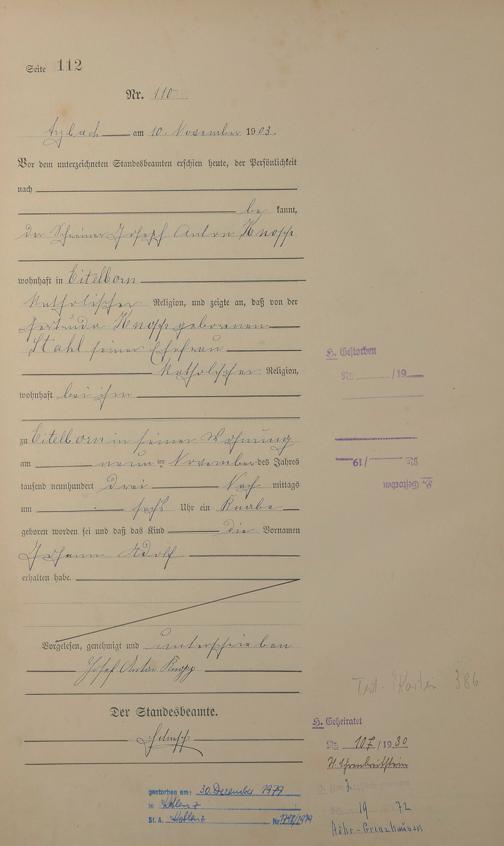 Seite 112
Nr. 110
Arzbach am 10. November 1903.
Vor dem unterzeichneten Standesbeamten erschien heute, der Persönlichkeit
nach
be kannt,
der Schreiner Joseph Anton Knopp
wohnhaft in Eitelborn
katholischer Religion, und zeigte an, daß von der
Gertruda Knopp geborenen
Stahl seiner Ehefrau
katholischer Religion,
wohnhaft bei ihm
zu Eitelborn in seiner Wohnung
am neunten November des Jahres
tausend neunhundert drei Nach mittags
um sechs Uhr ein Knabe
geboren worden sei und daß das Kind die Vornamen
Johann Adolf
erhalten habe.
Vorgelesen, genehmigt und unterschrieben
Josef Anton Knopp
Der Standesbeamte.
gestorben am: 30. Dezember 1979
in Koblenz
St. A. Koblenz Nr. /1979
H. Gestorben
No /19
H. Gestorben
No /19
386
H. Geheiratet
No 107/1930
Ehrenbreitstein
19 72
Höhr-Grenzhausen